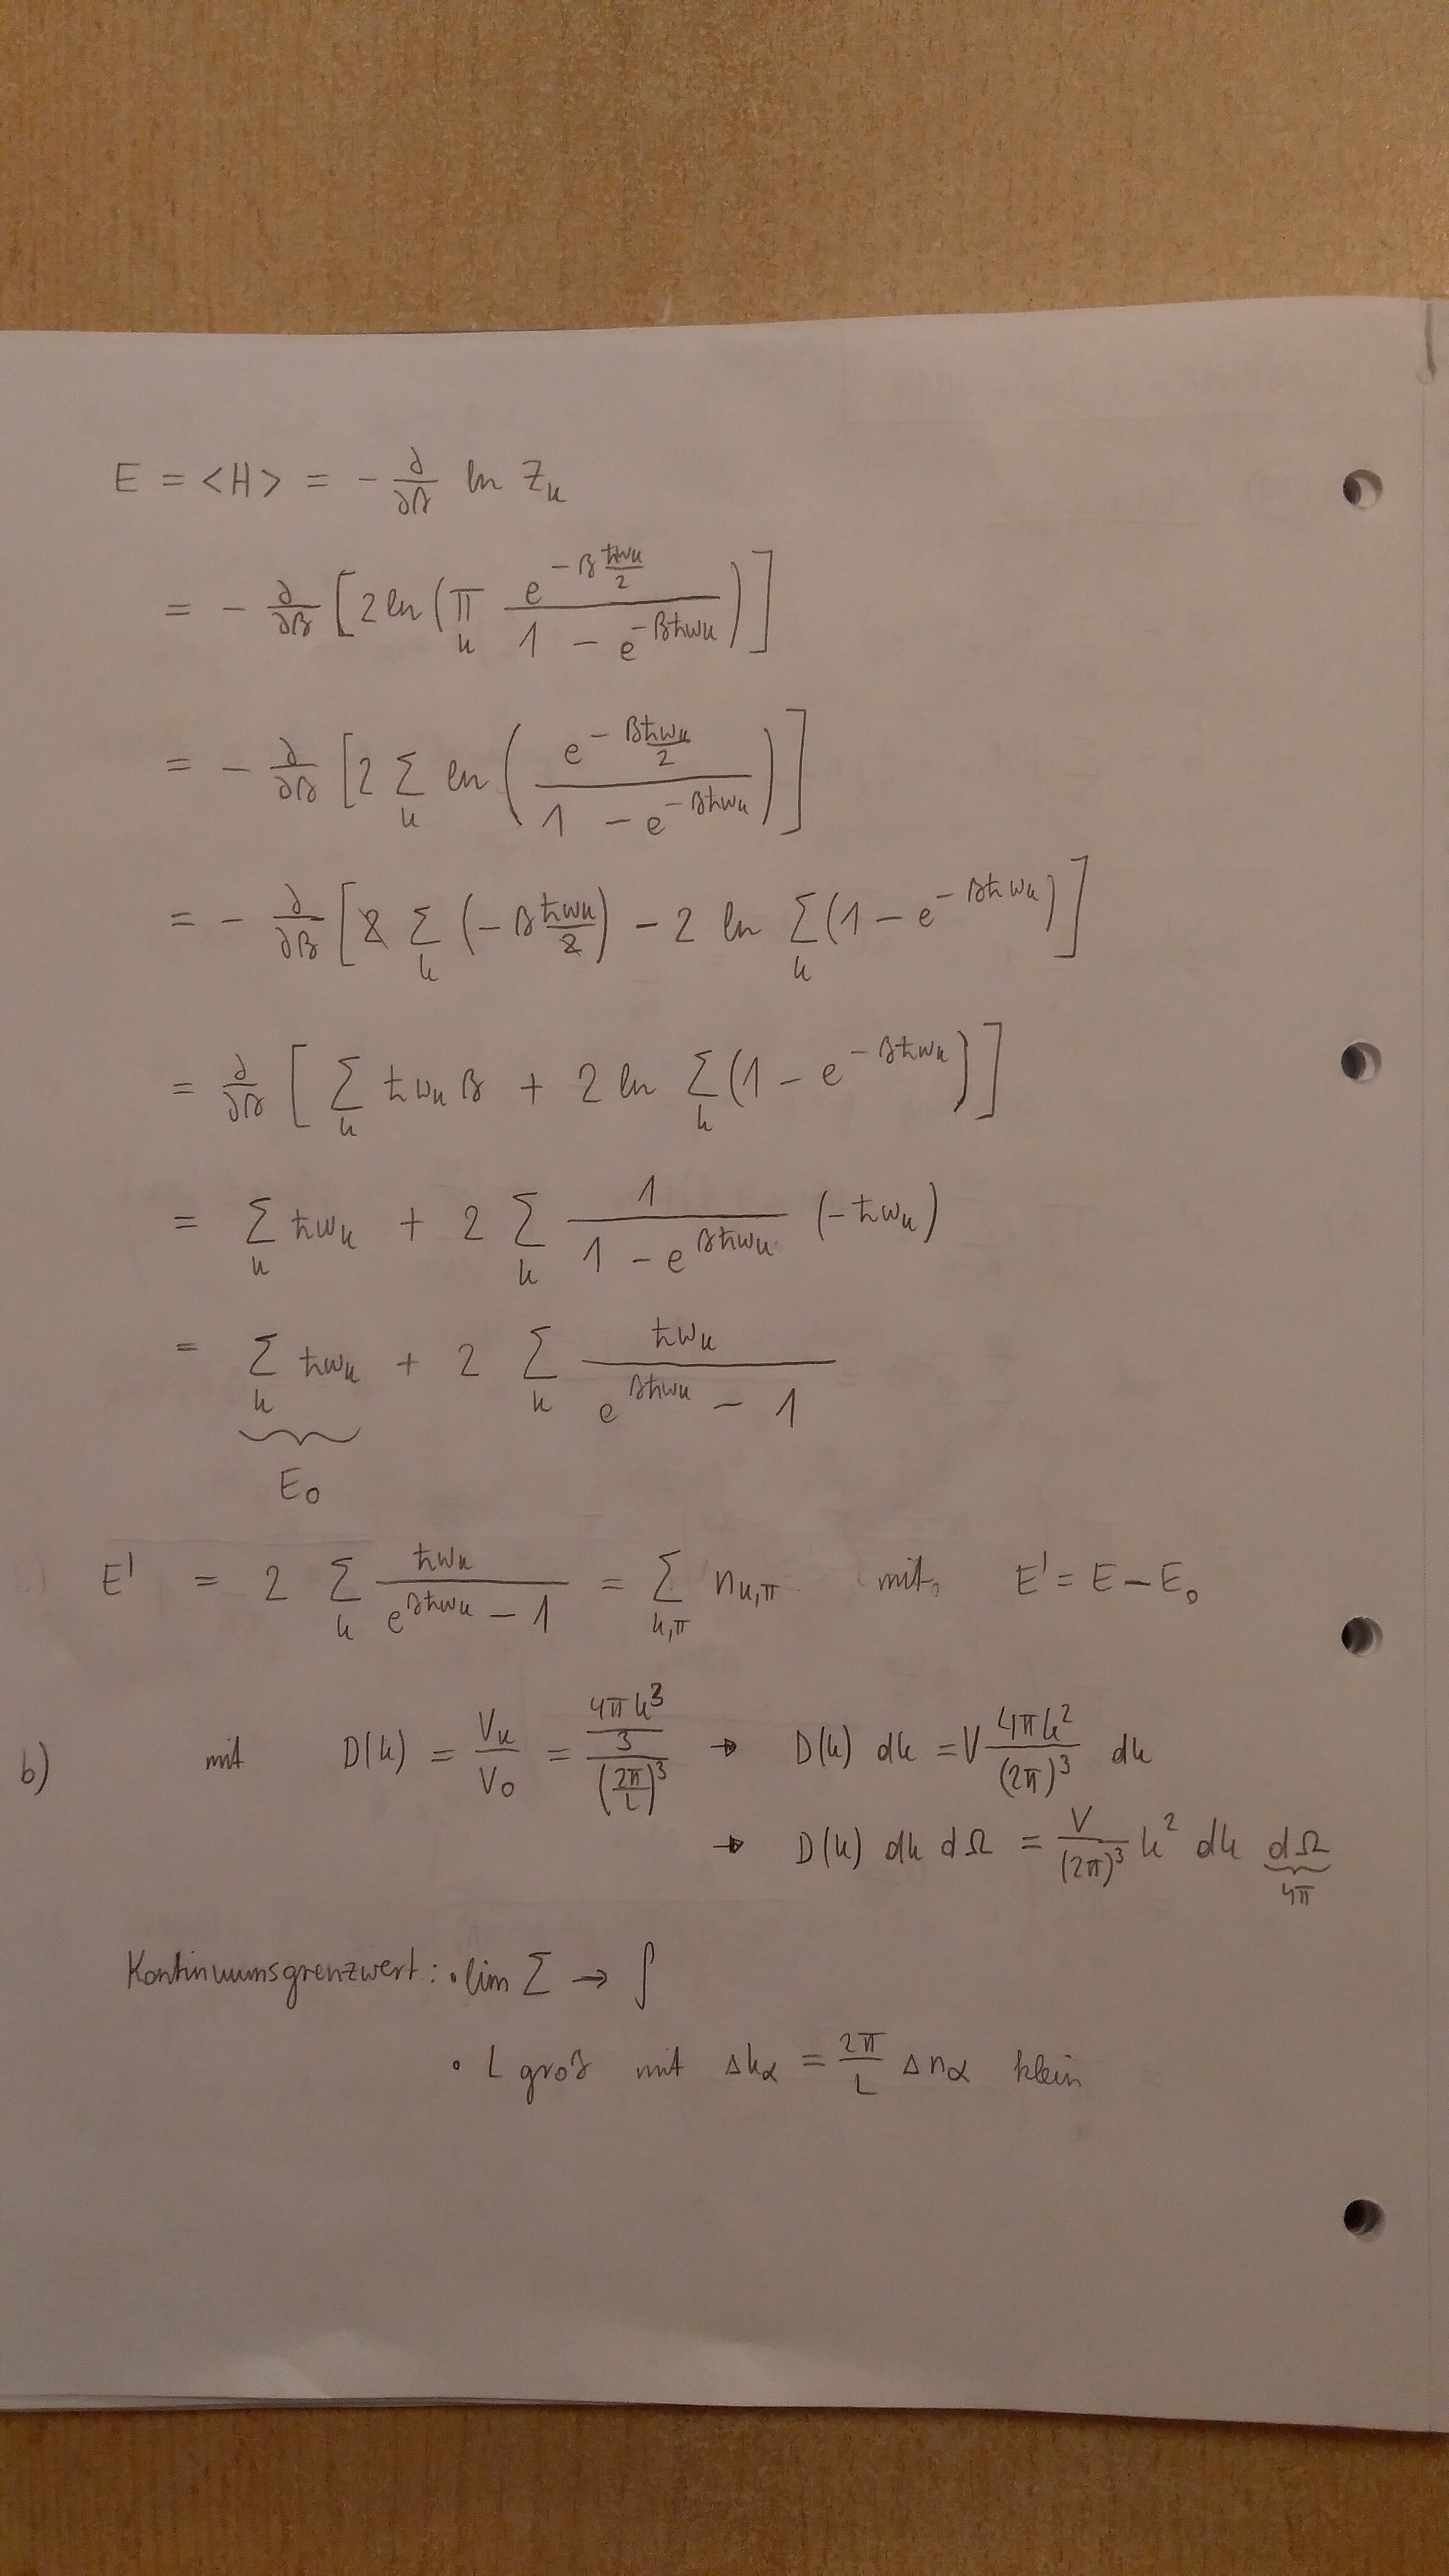 E = <H> = - ∂/∂β ln Z_k
= - ∂/∂β [2 ln (π_k e^{-β ħω_k/2} / (1 - e^{-βħω_k}))]
= - ∂/∂β [2 Σ_k ln (e^{-βħω_k/2} / (1 - e^{-βħω_k}))]
= - ∂/∂β [2 Σ_k (-β ħω_k/2) - 2 ln Σ_k (1 - e^{-βħω_k})]
= ∂/∂β [Σ_k ħω_k β + 2 ln Σ_k (1 - e^{-βħω_k})]
= Σ_k ħω_k + 2 Σ_k 1/(1 - e^{βħω_k}) (-ħω_k)
= Σ_k ħω_k + 2 Σ_k ħω_k/(e^{βħω_k} - 1)
E_0
E' = 2 Σ_k ħω_k/(e^{βħω_k} - 1) = Σ_{k,π} n_{k,π} mit E' = E - E_0
b) mit D(k) = V_k/V_0 = (4πk³/3)/(2π/L)³ → D(k) dk = V 4πk²/(2π)³ dk
→ D(k) dk dΩ = V/(2π)³ k² dk dΩ
4π
Kontinuumsgrenzwert: • lim Σ → ∫
• L groß mit Δk_α = 2π/L Δn_α klein